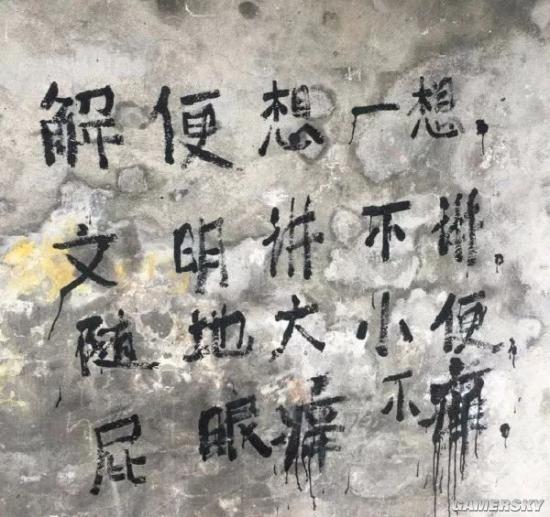 解便想一想,
文明讲不讲,
随地大小便,
屁眼痒不痛,
GAMERSKY